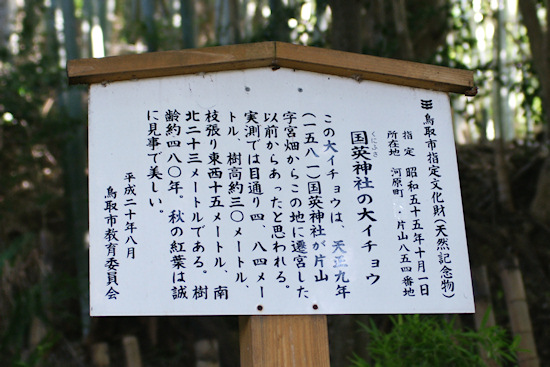 鳥取市指定文化財(天然記念物)
指定 昭和五十五年十月一日
所在地 河原町 片山八五四番地
くにふさ
国英神社の大イチョウ
この大イチョウは、天正九年
(一五八一)国英神社が片山
字宮畑からこの地に遷宮した
以前からあったと思われる。
実測では目通り四、八四メー
トル、樹高約三〇メートル、
枝張り東西十五メートル、南
北二十三メートルである。樹
齢約四八〇年。秋の紅葉は誠
に見事で美しい。
平成二十年八月
鳥取市教育委員会